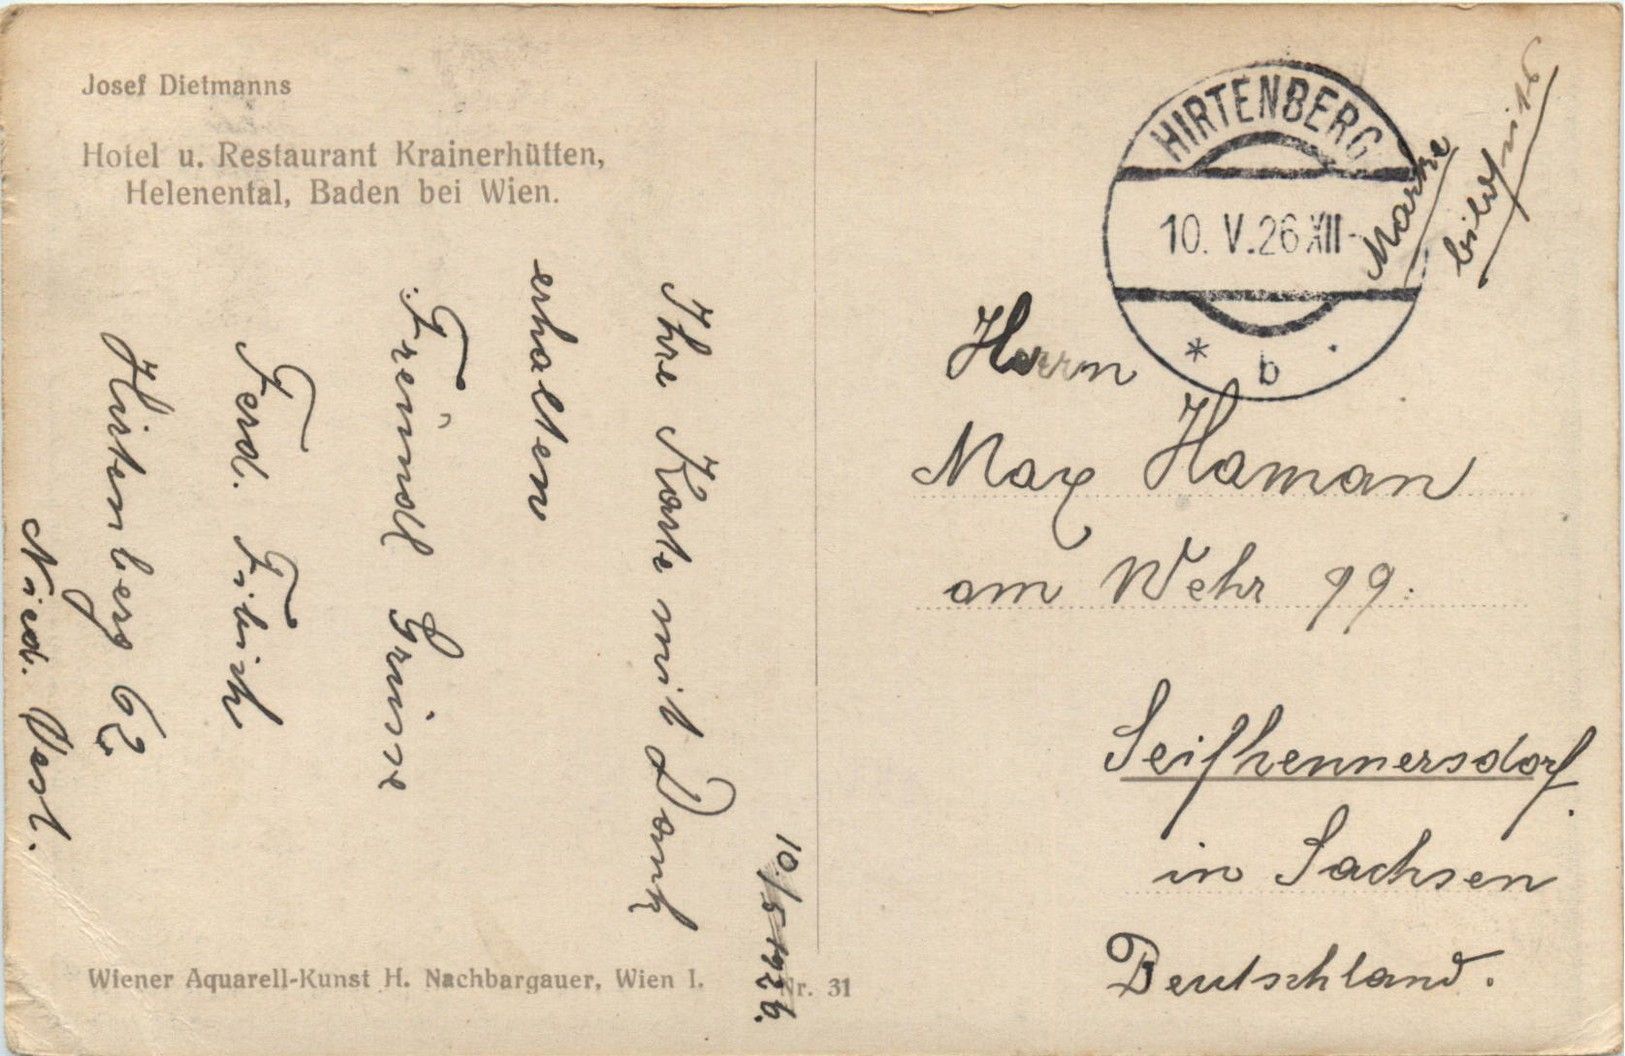 Josef Dietmanns
Hotel u. Restaurant Krainerhütten,
Helenental, Baden bei Wien.
10./5 1926.
Ihre Karte mit Dank
erhalten
Freundl Grüsse
Ferd. Fibich
Hirtenberg 62
Nied. Oest.
Wiener Aquarell-Kunst H. Nachbargauer, Wien I.
Nr. 31
HIRTENBERG
10. V. 26 XII
* b
Marke
bildseits
Herrn
Max Haman
am Wehr 99.
Seifhennersdorf.
in Sachsen
Deutschland.